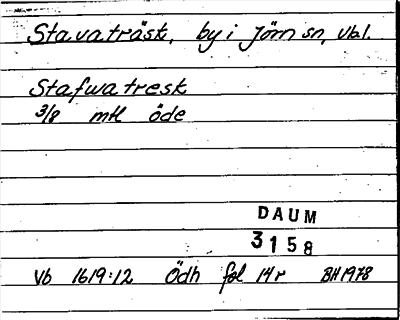 Stavaträsk, by i Jörn sn, Vbl.
Stafwatresk
3/8 mtl öde
DAUM
3158
Vb 1619:12 Ödh fol 14r BH 1978